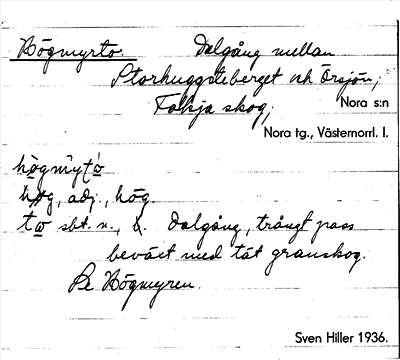 Högmyrto. Dalgång mellan
Storhuggsteberget och Örsjön,
Fälsja skog, Nora s:n
Nora tg., Västernorrl. l.
högmyto
hög, adj., hög.
to sbt. n., b. Dalgång, trångt pass
beväxt med tät granskog.
Be. Högmyren.
Sven Hiller 1936.